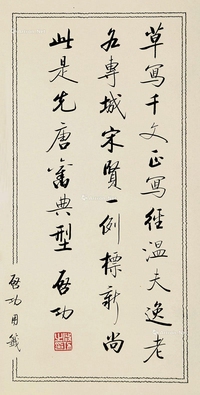 草寫千文正寫經溫夫逸老
各專城宋賢一例標新尚
此是先唐舊典型 啓功
啓功用箋